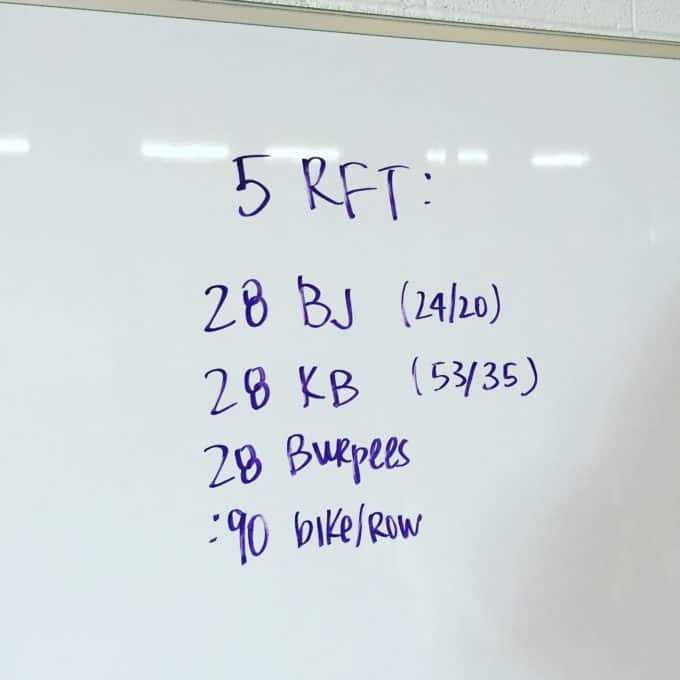 5 RFT:
28 BJ (24/20)
28 KB (53/35)
28 Burpees
:90 bike/row